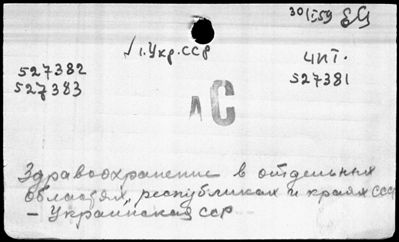 30/I.59
√ 1. Укр. ССР
527382
527383
ЧИТ.
527381
АС
Здравоохранение в отдельных
областях, республиках и краях СССР
– Украинская ССР